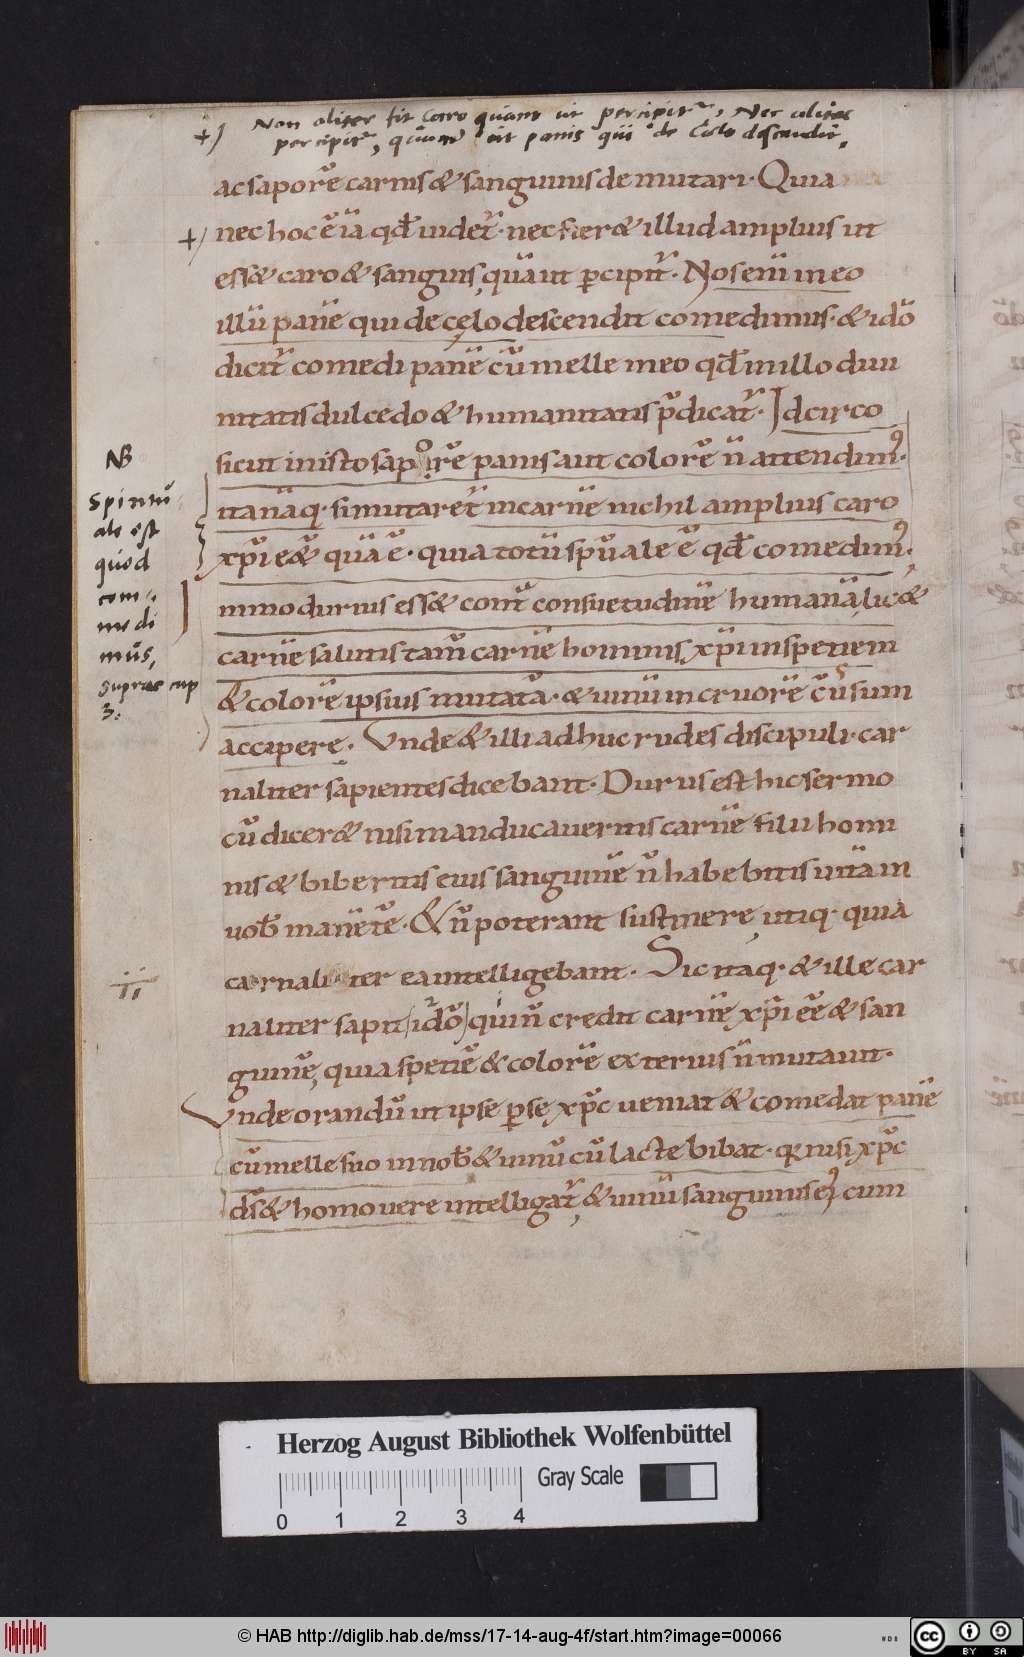 +) Non aliter fit Caro quam ut percipit᷑, Nec aliter
percipit᷑, quam ut panis qui de Cœlo descendit.
ac saporē carnis & sanguinis demutari. Quia
+) nec hoc ē iā qd̄ uidet᷑. nec fier& illud amplius ut
ess& caro & sanguis, quā ut ꝑcipit᷑. Nos eni in eo
illū panē qui de cęlo descendit comedimus. & idō
dicit᷑ comedi panē cū melle meo qd̄ in illo diui
nitatis dulcedo & humanitatis p̄dicat᷑. Idcirco
sicut in isto saporē panis aut colorē n̄ attendim᷒.
ita nāq. si mutaret᷑ in carnē nichil amplius caro
xp̄i eē& quā ē. quia totū sp̄uale ē qd̄ comedim᷒.
immo durius ess& cont᷑ consuetudinē humanā, lic&
carnē salutis tam̄ carnē hominis, xp̄i in spetiem
& colorē ipsius mutatā. & uinū in cruorē c̄usum
accipere. Unde & illi adhuc rudes discipuli. car
naliter sapientes dicebant. Durus est hic sermo
cū dicer& nisi manducaueritis carnē filii homi
nis & biberitis eius sanguinē n̄ habebitis uitā in
uob̄ manētē. & n̄ poterant sustinere, utiq. quia
carnaliter ea intelligebant. Sic itaq. & ille car
naliter sapit, idō, qui n̄ credit carnē xp̄i eē & san
guinē, quia spetiē & colorē exterius n̄ mutauit.
Unde orandū ut ipse ꝑ se xp̄c ueniat & comedat panē
cū melle suo in nob̄ & uinū cū lacte bibat. qr̄ nisi xp̄c
d̄s & homo uere intelligat᷑, & uinū sanguinis ei᷒ cum
NB
Spiritu
ale est
quod
com-
medi
mus,
supra cap
3.
Herzog August Bibliothek Wolfenbüttel
Gray Scale
0 1 2 3 4
© HAB http://diglib.hab.de/mss/17-14-aug-4f/start.htm?image=00066
WDB
cc BY SA